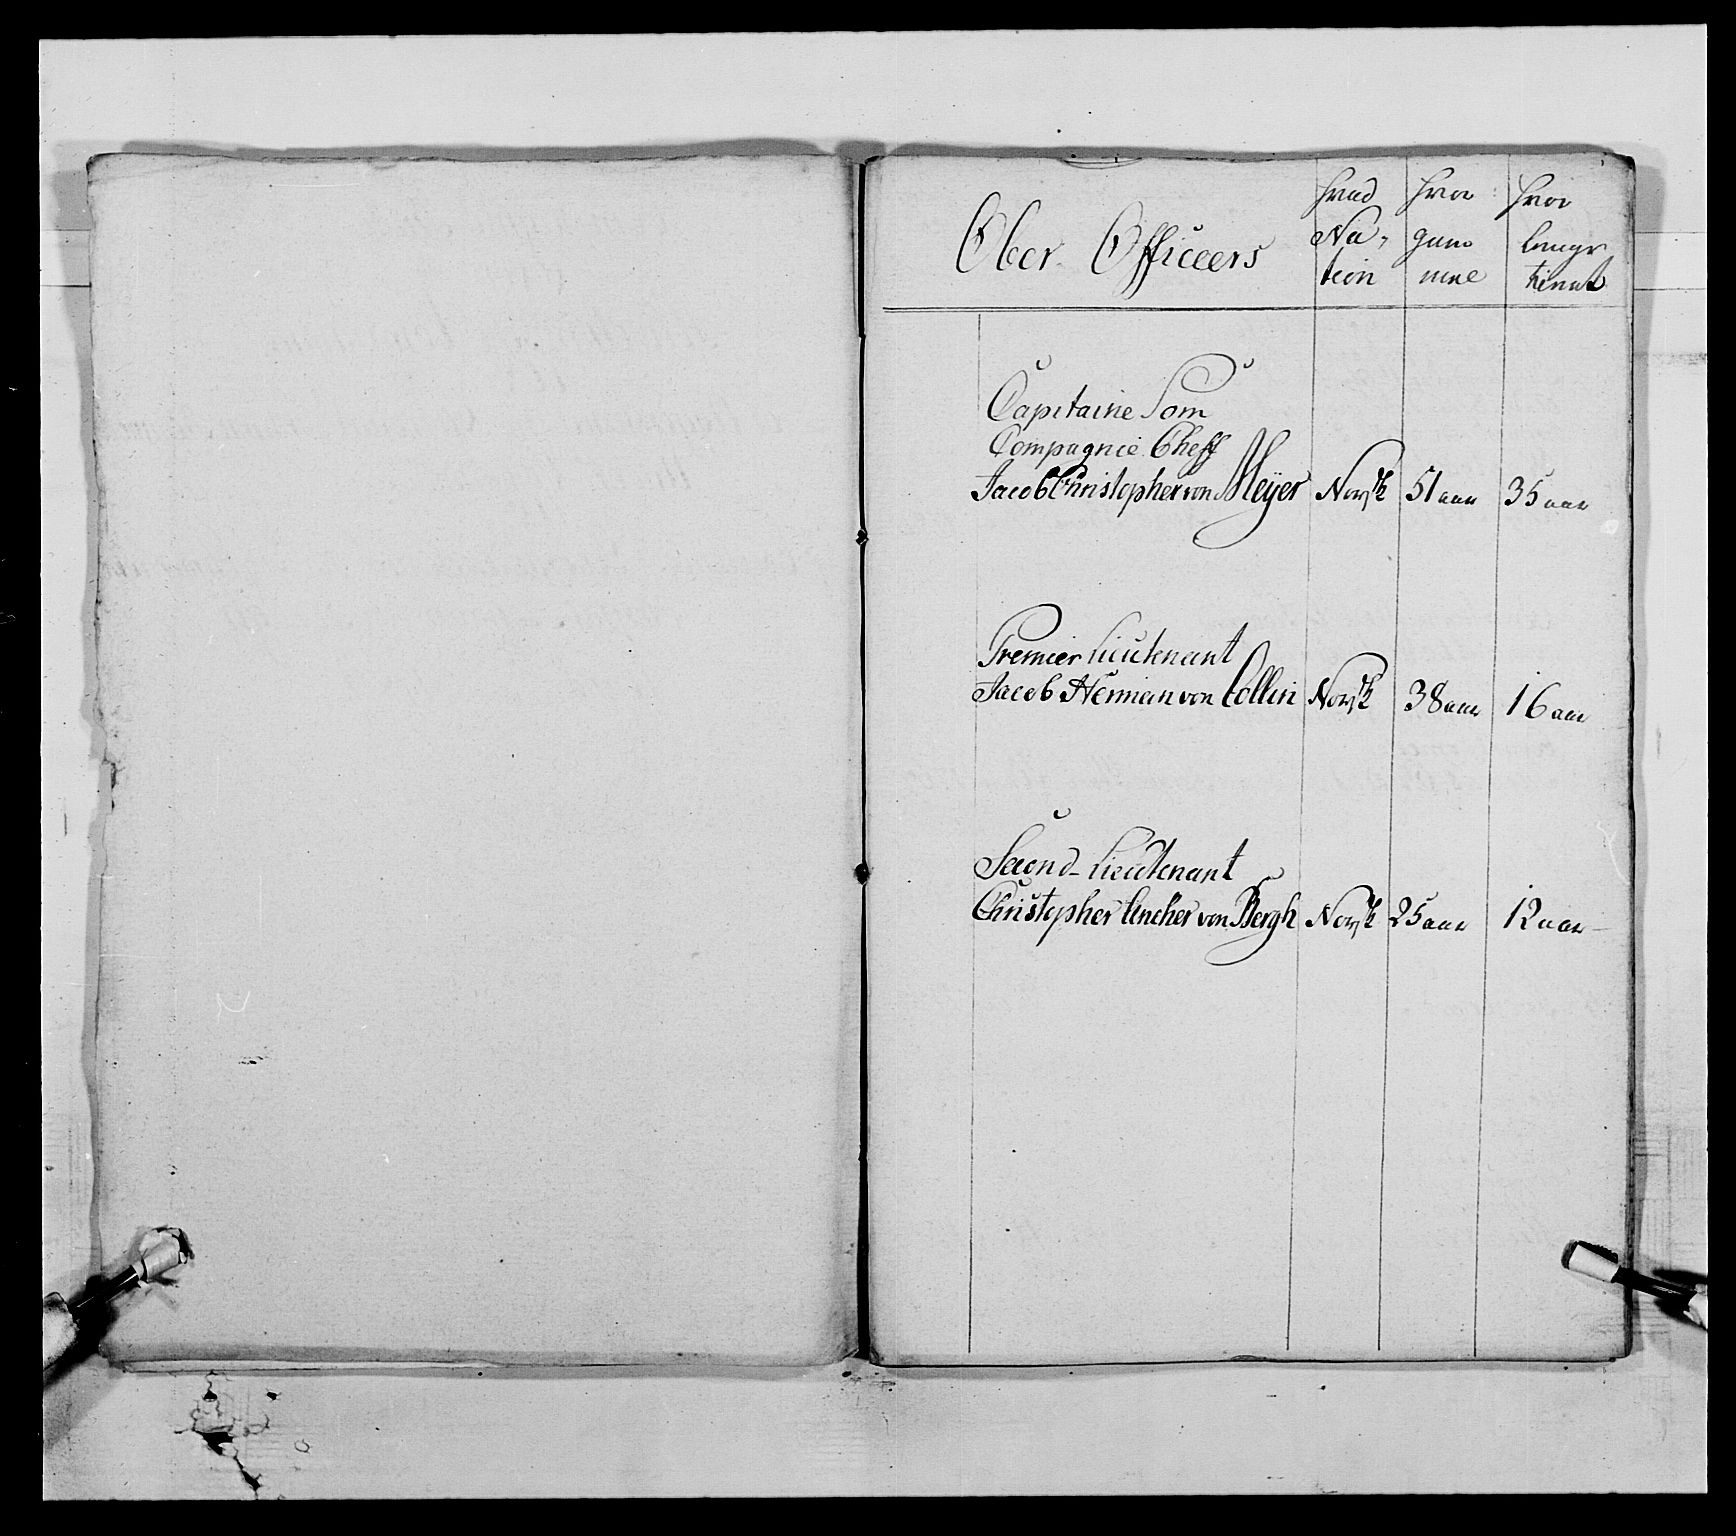 Ober Officeers
hvad Na,tion
hvor gammel
hvor længe tiennt
Capitaine Som
Compagnie Cheff
Jacob Christopher von Meÿer Norsk 51 aar 35 aar
Premier Lieutenant
Jacob Herman von Collin Norsk 38 aar 16 aar
Second-Lieutenant
Christopher Ancher von Bergh Norsk 25 aar 12 aar